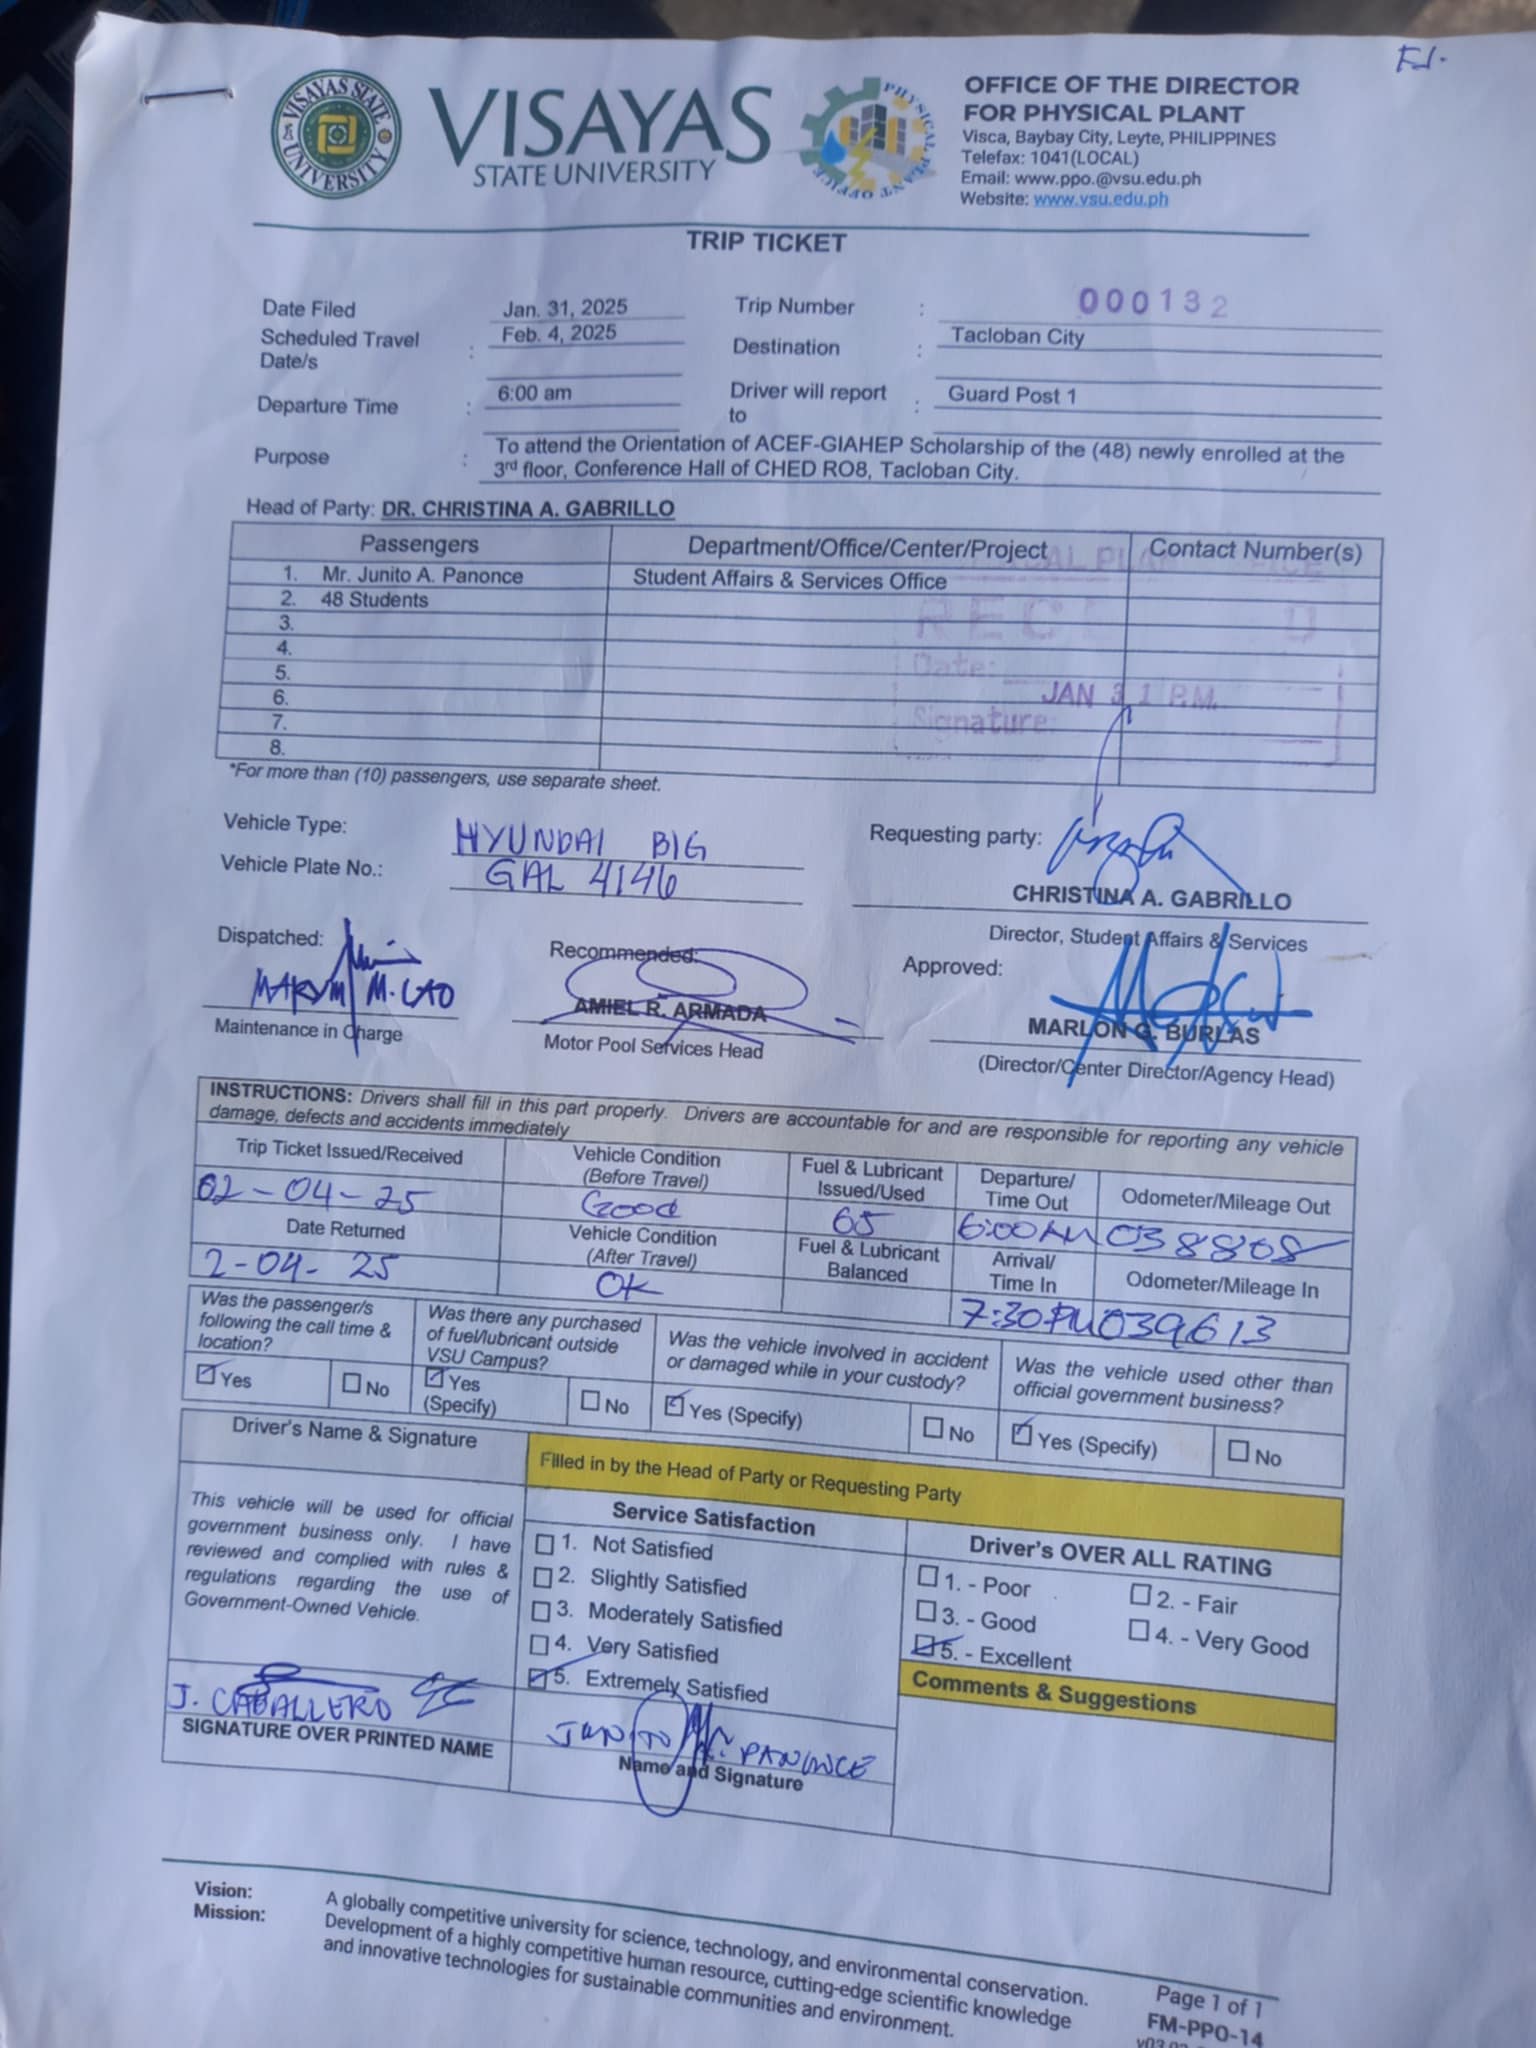 VISAYAS
STATE UNIVERSITY
VISAYAS STATE UNIVERSITY
PHYSICAL PLANT OFFICE
OFFICE OF THE DIRECTOR
FOR PHYSICAL PLANT
Visca, Baybay City, Leyte, PHILIPPINES
Telefax: 1041(LOCAL)
Email: www.ppo.@vsu.edu.ph
Website: www.vsu.edu.ph
TRIP TICKET
Date Filed Jan. 31, 2025 Trip Number : 000132
Scheduled Travel Date/s : Feb. 4, 2025 Destination : Tacloban City
Departure Time : 6:00 am Driver will report to : Guard Post 1
Purpose : To attend the Orientation of ACEF-GIAHEP Scholarship of the (48) newly enrolled at the
3rd floor, Conference Hall of CHED RO8, Tacloban City.
Head of Party: DR. CHRISTINA A. GABRILLO
Passengers Department/Office/Center/Project Contact Number(s)
1. Mr. Junito A. Panonce Student Affairs & Services Office
2. 48 Students
3.
4.
5.
6.
7.
8.
Date:
JAN 31 P.M.
Signature:
*For more than (10) passengers, use separate sheet.
Vehicle Type: HYUNDAI BIG Requesting party:
Vehicle Plate No.: GAL 4146
CHRISTINA A. GABRILLO
Director, Student Affairs & Services
Dispatched: Recommended: Approved:
MARVIN M. CAO AMIEL R. ARMADA MARLON G. BURLAS
Maintenance in Charge Motor Pool Services Head (Director/Center Director/Agency Head)
INSTRUCTIONS: Drivers shall fill in this part properly. Drivers are accountable for and are responsible for reporting any vehicle
damage, defects and accidents immediately
Trip Ticket Issued/Received Vehicle Condition (Before Travel) Fuel & Lubricant Issued/Used Departure/ Time Out Odometer/Mileage Out
02-04-25 Good 65 6:00AM 038808
Date Returned Vehicle Condition (After Travel) Fuel & Lubricant Balanced Arrival/ Time In Odometer/Mileage In
2-04-25 OK 7:30PM 039613
Was the passenger/s following the call time & location? Was there any purchased of fuel/lubricant outside VSU Campus? Was the vehicle involved in accident or damaged while in your custody? Was the vehicle used other than official government business?
Yes No Yes (Specify) No Yes (Specify) No Yes (Specify) No
Driver's Name & Signature
Filled in by the Head of Party or Requesting Party
This vehicle will be used for official
government business only. I have
reviewed and complied with rules &
regulations regarding the use of
Government-Owned Vehicle.
J. CABALLERO
SIGNATURE OVER PRINTED NAME
Service Satisfaction
1. Not Satisfied
2. Slightly Satisfied
3. Moderately Satisfied
4. Very Satisfied
5. Extremely Satisfied
JUNITO A. PANONCE
Name and Signature
Driver's OVER ALL RATING
1. - Poor 2. - Fair
3. - Good 4. - Very Good
5. - Excellent
Comments & Suggestions
Vision: A globally competitive university for science, technology, and environmental conservation.
Mission: Development of a highly competitive human resource, cutting-edge scientific knowledge
and innovative technologies for sustainable communities and environment.
Page 1 of 1
FM-PPO-14